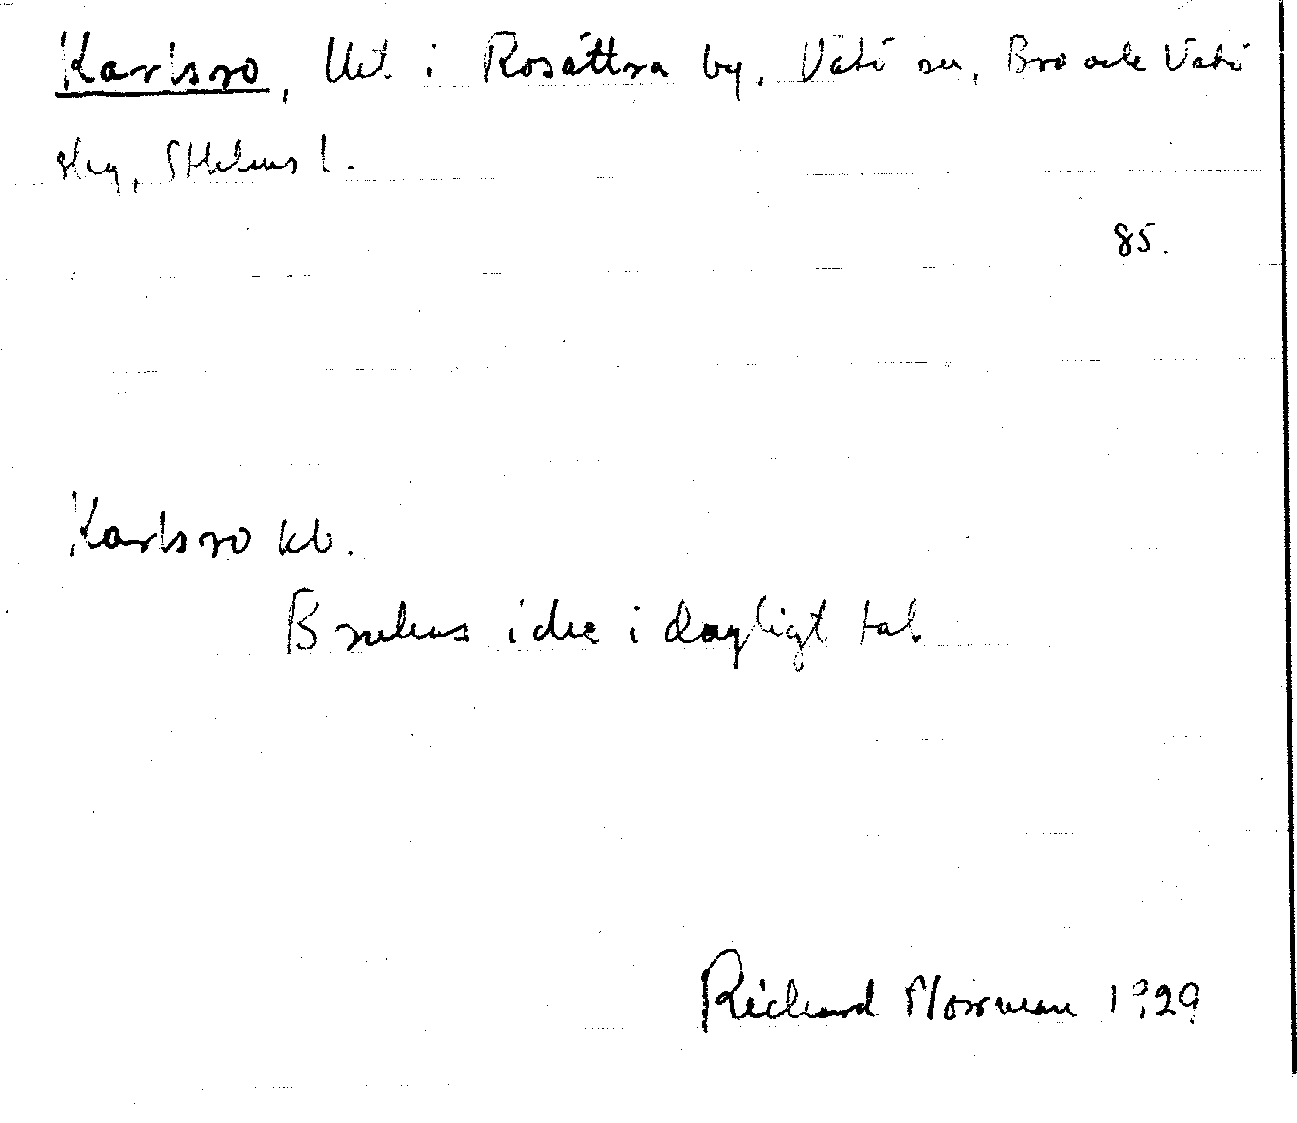 Karlsro, lht i Rosättra by, Vätö sn, Bro och Vätö
skg, Sthlms l.
85.
Karlsro lt.
Brukas icke i dagligt tal.
Richard Norrman 1929